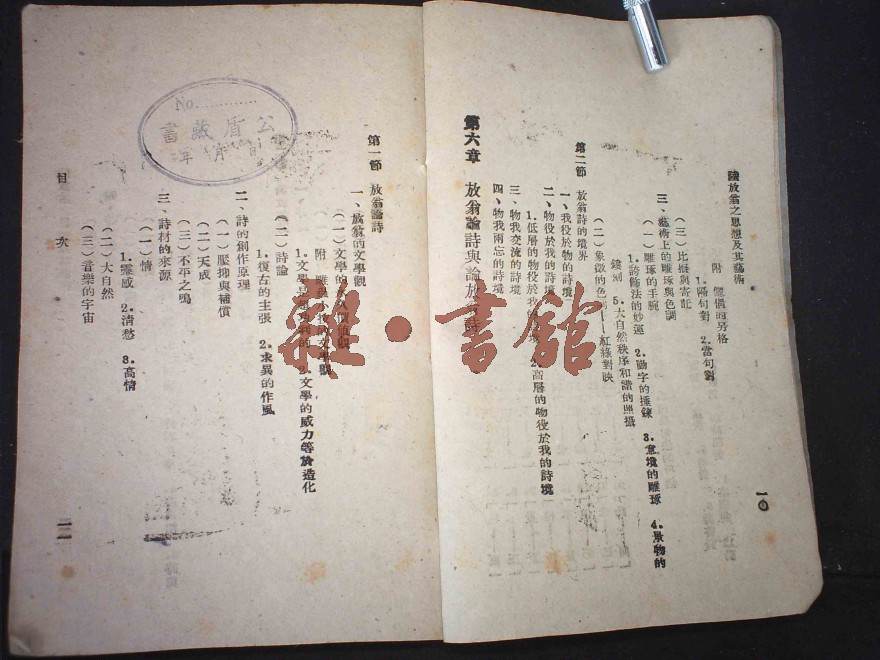 陸放翁之思想及其藝術
一〇
附 儷偶的另格
1.隔句對 2.當句對
（三）比擬與寄託
三、藝術上的雕琢與色調
（一）雕琢的手腕
1.誇飾法的妙運 2.動字的捶鍊 3.意境的雕琢 4.景物的
鏤刻 5.大自然秩序和諧的照攝
（二）象徵的色 紅綠對映
第二節 放翁詩的境界
一、我役於物的詩境
二、物役於我的詩境
1.低層的物役於我的詩境 2.高層的物役於我的詩境
三、物我交流的詩境
四、物我兩忘的詩境
第六章 放翁論詩與論放翁詩
第一節 放翁論詩
一、放翁的文學觀
（一）文學的 價值觀
附 雕蟲小技的文學觀
1.文學是 的 2.文學的威力等於造化
（二）詩論
1.復古的主張 2.求異的作風
二、詩的創作原理
（一）壓抑與補償
（二）天成
（三）不平之鳴
三、詩材的來源
（一）情
1.靈感 2.清愁 3.高情
（二）大自然
（三）音樂的宇宙
目次
一一
No.
公盾藏書
年 月 日
雜·書館